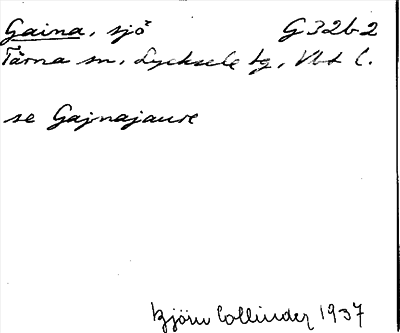 Gaina, sjö G 32b 2
Tärna sn, Lycksele tg, Vbt l.
se Gajnajaure
Björn Collinder 1937